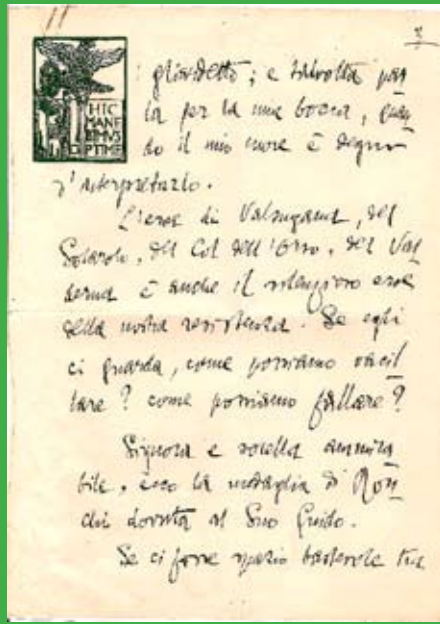 HIC
MANE
BIMVS
OPTIME
e talvolta par
la per la mia bocca, quan
do il mio cuore è degno
d'interpretarlo.
L'eroe di Valsugana, del
Solarolo, del Col dell'Orso, del Val
derna è anche il silenzioso eroe
della nostra resistenza. Se egli
ci guarda, come possiamo vacil
lare? come possiamo fallare?
Signora e sorella ammira
bile, ecco la medaglia di Ron
chi dovuta al Suo Guido.
Se ci fosse spazio bastevole tra